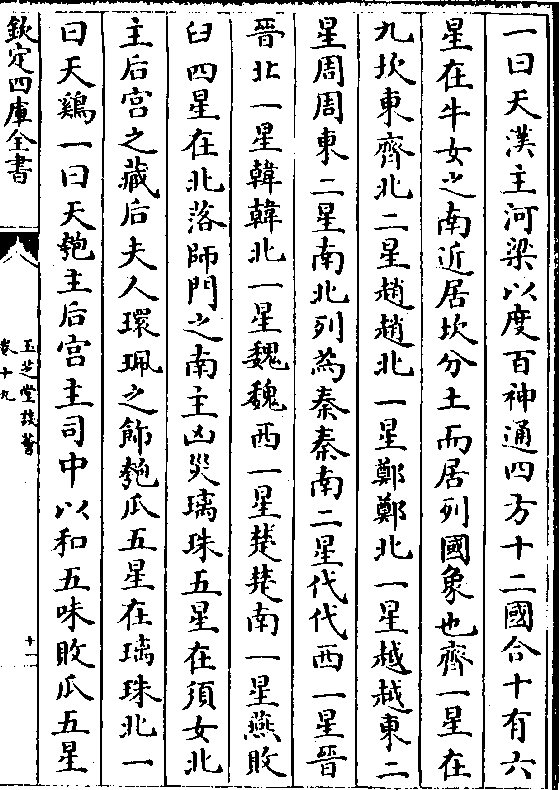 一曰天漢主河梁以度百神通四方十二國合十有六
星在牛女之南近居坎分土而居列國象也齊一星在
九坎東齊北二星趙趙北一星鄭鄭北一星越越東二
星周周東二星南北列為秦秦南二星代代西一星晉
晉北一星韓韓北一星魏魏西一星楚楚南一星燕敗
臼四星在北落師門之南主凶災璃珠五星在須女北
主后宮之藏后夫人環珮之飾匏瓜五星在璃珠北一
曰天鷄一曰天匏主后宮主司中以和五味敗瓜五星
欽定四庫全書
玉芝堂談薈
卷十九
十二